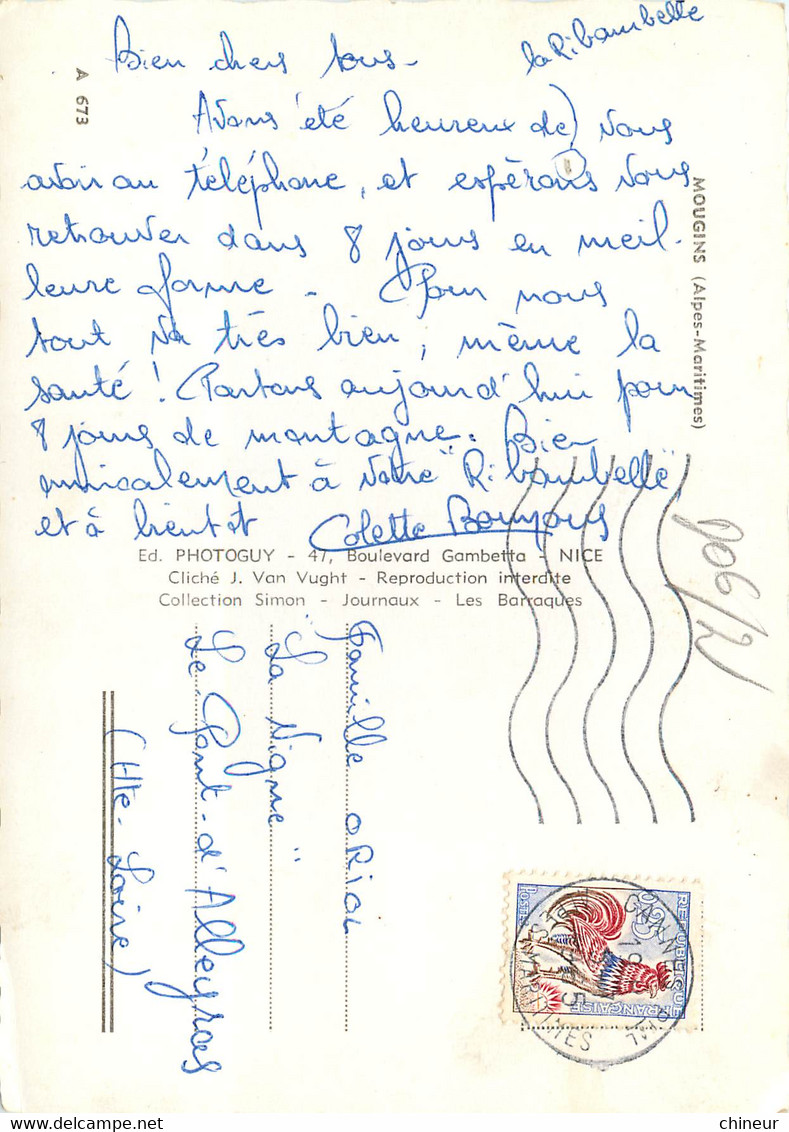 la Ribambelle
Bien chers tous -
Avons été heureux de vous
avoir au téléphone, et espérons vous
retrouver dans 8 jours en meil-
leure forme - Pour nous
tout va très bien, même la
santé ! Partons aujourd'hui pour
8 jours de montagne. Bien
amicalement à votre "Ribambelle"
et à bientôt Colette
A 673
MOUGINS (Alpes-Maritimes)
Ed. PHOTOGUY - 47, Boulevard Gambetta - NICE
Cliché J. Van Vught - Reproduction interdite
Collection Simon - Journaux - Les Barraques
906/2
Famille ORIOL
"La Vigne"
Le Pont-d'Alleyras
(Hte-Loire)
REPUBLIQUE
FRANÇAISE
POSTES
0,25
CANNES
ALPES MARITIMES
delcampe.net
chineur